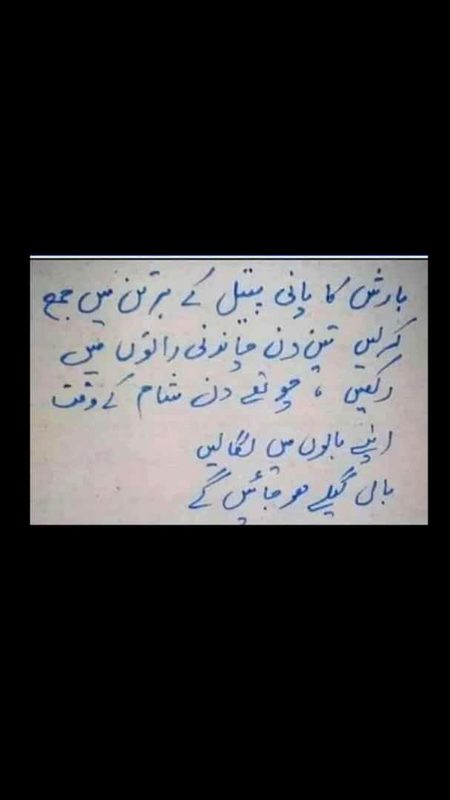 بارش کا پانی پیتل کے برتن میں جمع
کرلیں تین دن چاندنی راتوں میں
رکھیں ، چوتھے دن شام کے وقت
اپنے بالوں میں لگالیں
بال گیلے ہو جائیں گے